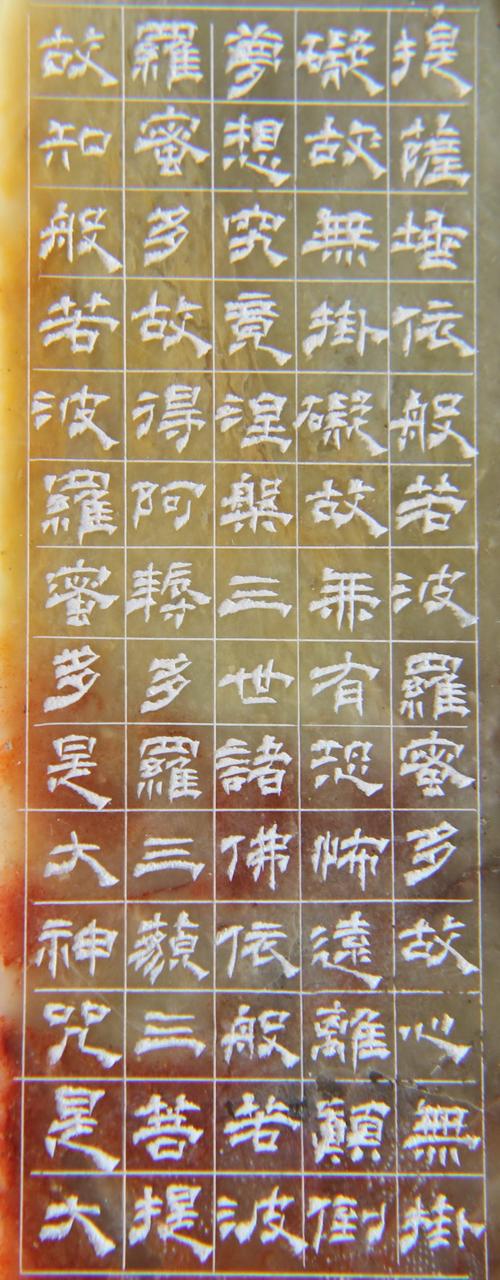 提薩埵依般若波羅蜜多故心無掛
礙故無掛礙故無有恐怖遠離顛倒
夢想究竟涅槃三世諸佛依般若波
羅蜜多故得阿耨多羅三藐三菩提
故知般若波羅蜜多是大神咒是大